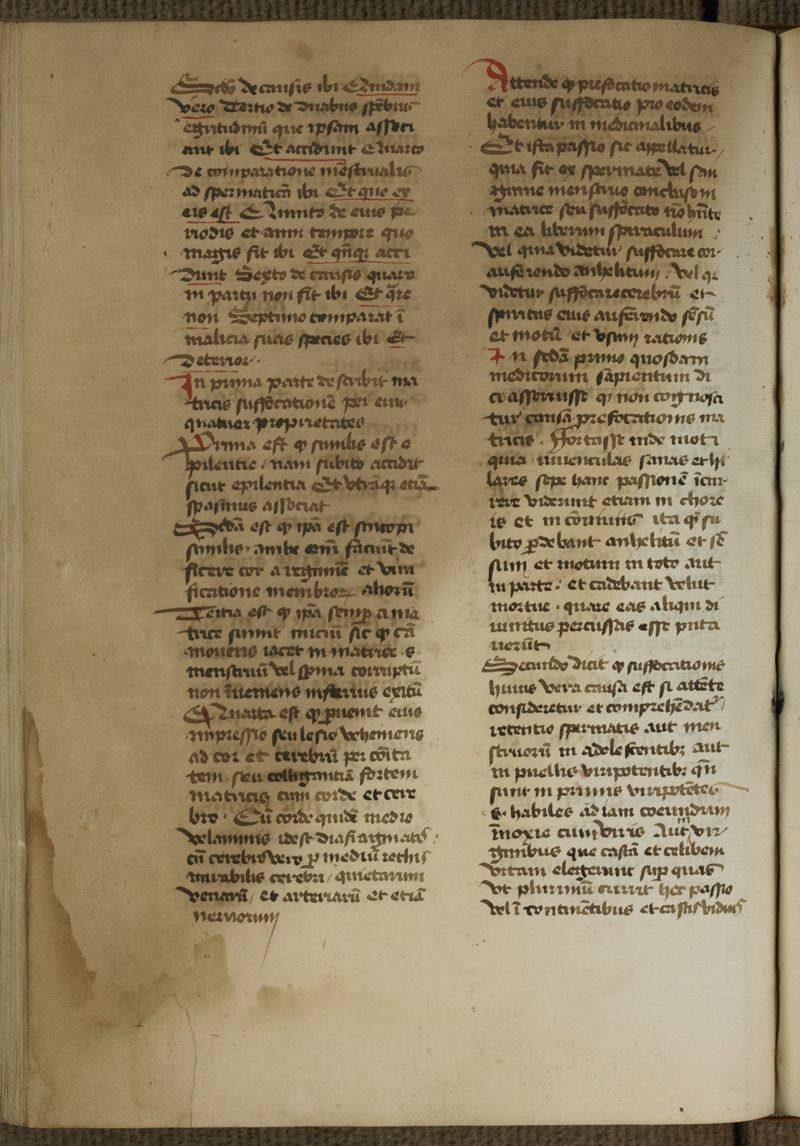 Scdo de causis ibi Quidam
vero Tertio de duabus spebus
egritudinū que ipsam associ
ant ibi Et accidunt Quarto
De comparatione mēstrualis
ad spermaticā ibi Et que ex
eis est Quinto de eius pe
riodis et anni tempore quo
magis fit ibi Et qñqȝ acci
Dunt Sexto de causis quare
in partu non fit ibi Et qre
non Septimo comparat ī
malicia suas species ibi Et
Deterior
In prima parte describit ma
tricis suffocationē per eius
quatuor proprietates
Prima est qp similis est e
pilentie . nam subito accidit
sicut epilentia Et utrāqȝ etiā
spasmus associat
Scda est qp ipa est sincopi
similis . ambe enim faciūt de
ficere cor a regimine et vivi
ficatione membrorum aliorū
Tertia est qp ipa semp a ma
trice sumit iniciū sic qp cā
movens iacet in matrice .s.
menstruū vel spma corruptū
non īveniens inferius exitū
Quarta est qp pvenit eius
impressio seu lesio vehemens
ad cor et cerebrū per cōita
tem seu colligantiā fortem
matricis cum corde et cere
bro . Cū corde quidē medio
velaminis idest diafragmatis
cū cerebro vero p mediū rethis
mirabilis cerebri / quietarum
venarū / et arteriarū et etiā
nervorum
Attende qp prefocatio matricis
et eius suffocatio pro eodem
habentur in medicinalibus
Et ista passio sic appellatur
quia fit ex spermate vel san
guine menstruo concluso in
matrice seu suffocato nō hñte
in ea liberum spiraculum
vel quia videtur suffocare cor
auferendo anhelitum . vel qȝ
videtur suffocare cerebrū et
spiritus eius auferendo sēsū
et motū et usum rationis
In scda primo quosdam
medicorum sapientum di
cit asseruisse qp non cognosci
tur causa prefocationis ma
tricis . Fortasse inde moti
quia iuvenculas sanas et hi
lares sepe hanc passionē icur
rere viderunt etiam in chore
is et in cōviviis ita qp su
bito pdebant anhelitū et sē
sum et motum in toto aut
in parte . et cadebant velut
mortue . quare eas aliqui di
vinitus percussas esse puta
verūt
Secundo dicit qp suffocationis
huius vera causa est si attēte
consideretur et comprehēdatur
retentio spermatis aut men
struorū in adolescentibȝ aut
in puellis viripotentibȝ qñ
sunt in primis viripotētes
.s. habiles ad iam coeundum
īnoxie cum viris Aut in vir
ginibus que castā et celibem
vitam elegerunt sup quas
Ut plurimū currit hec passio
vel ī continētibus et castis viduis